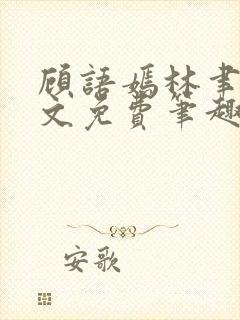 顾語嫣林聿
文免费筆趣
安歌